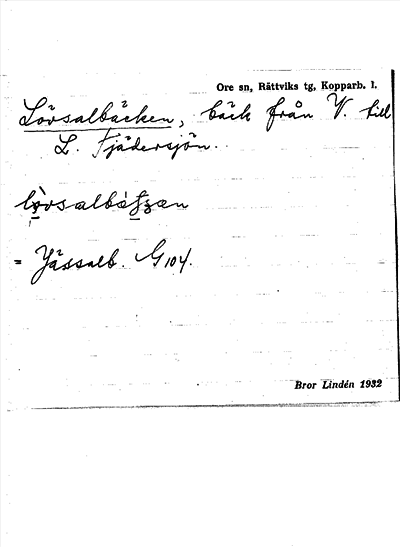 Ore sn, Rättviks tg, Kopparb. l.
Lövsalbäcken, bäck från V. till
L. Fjädersjön.
= Jässalb. G 104.
Bror Lindén 1932